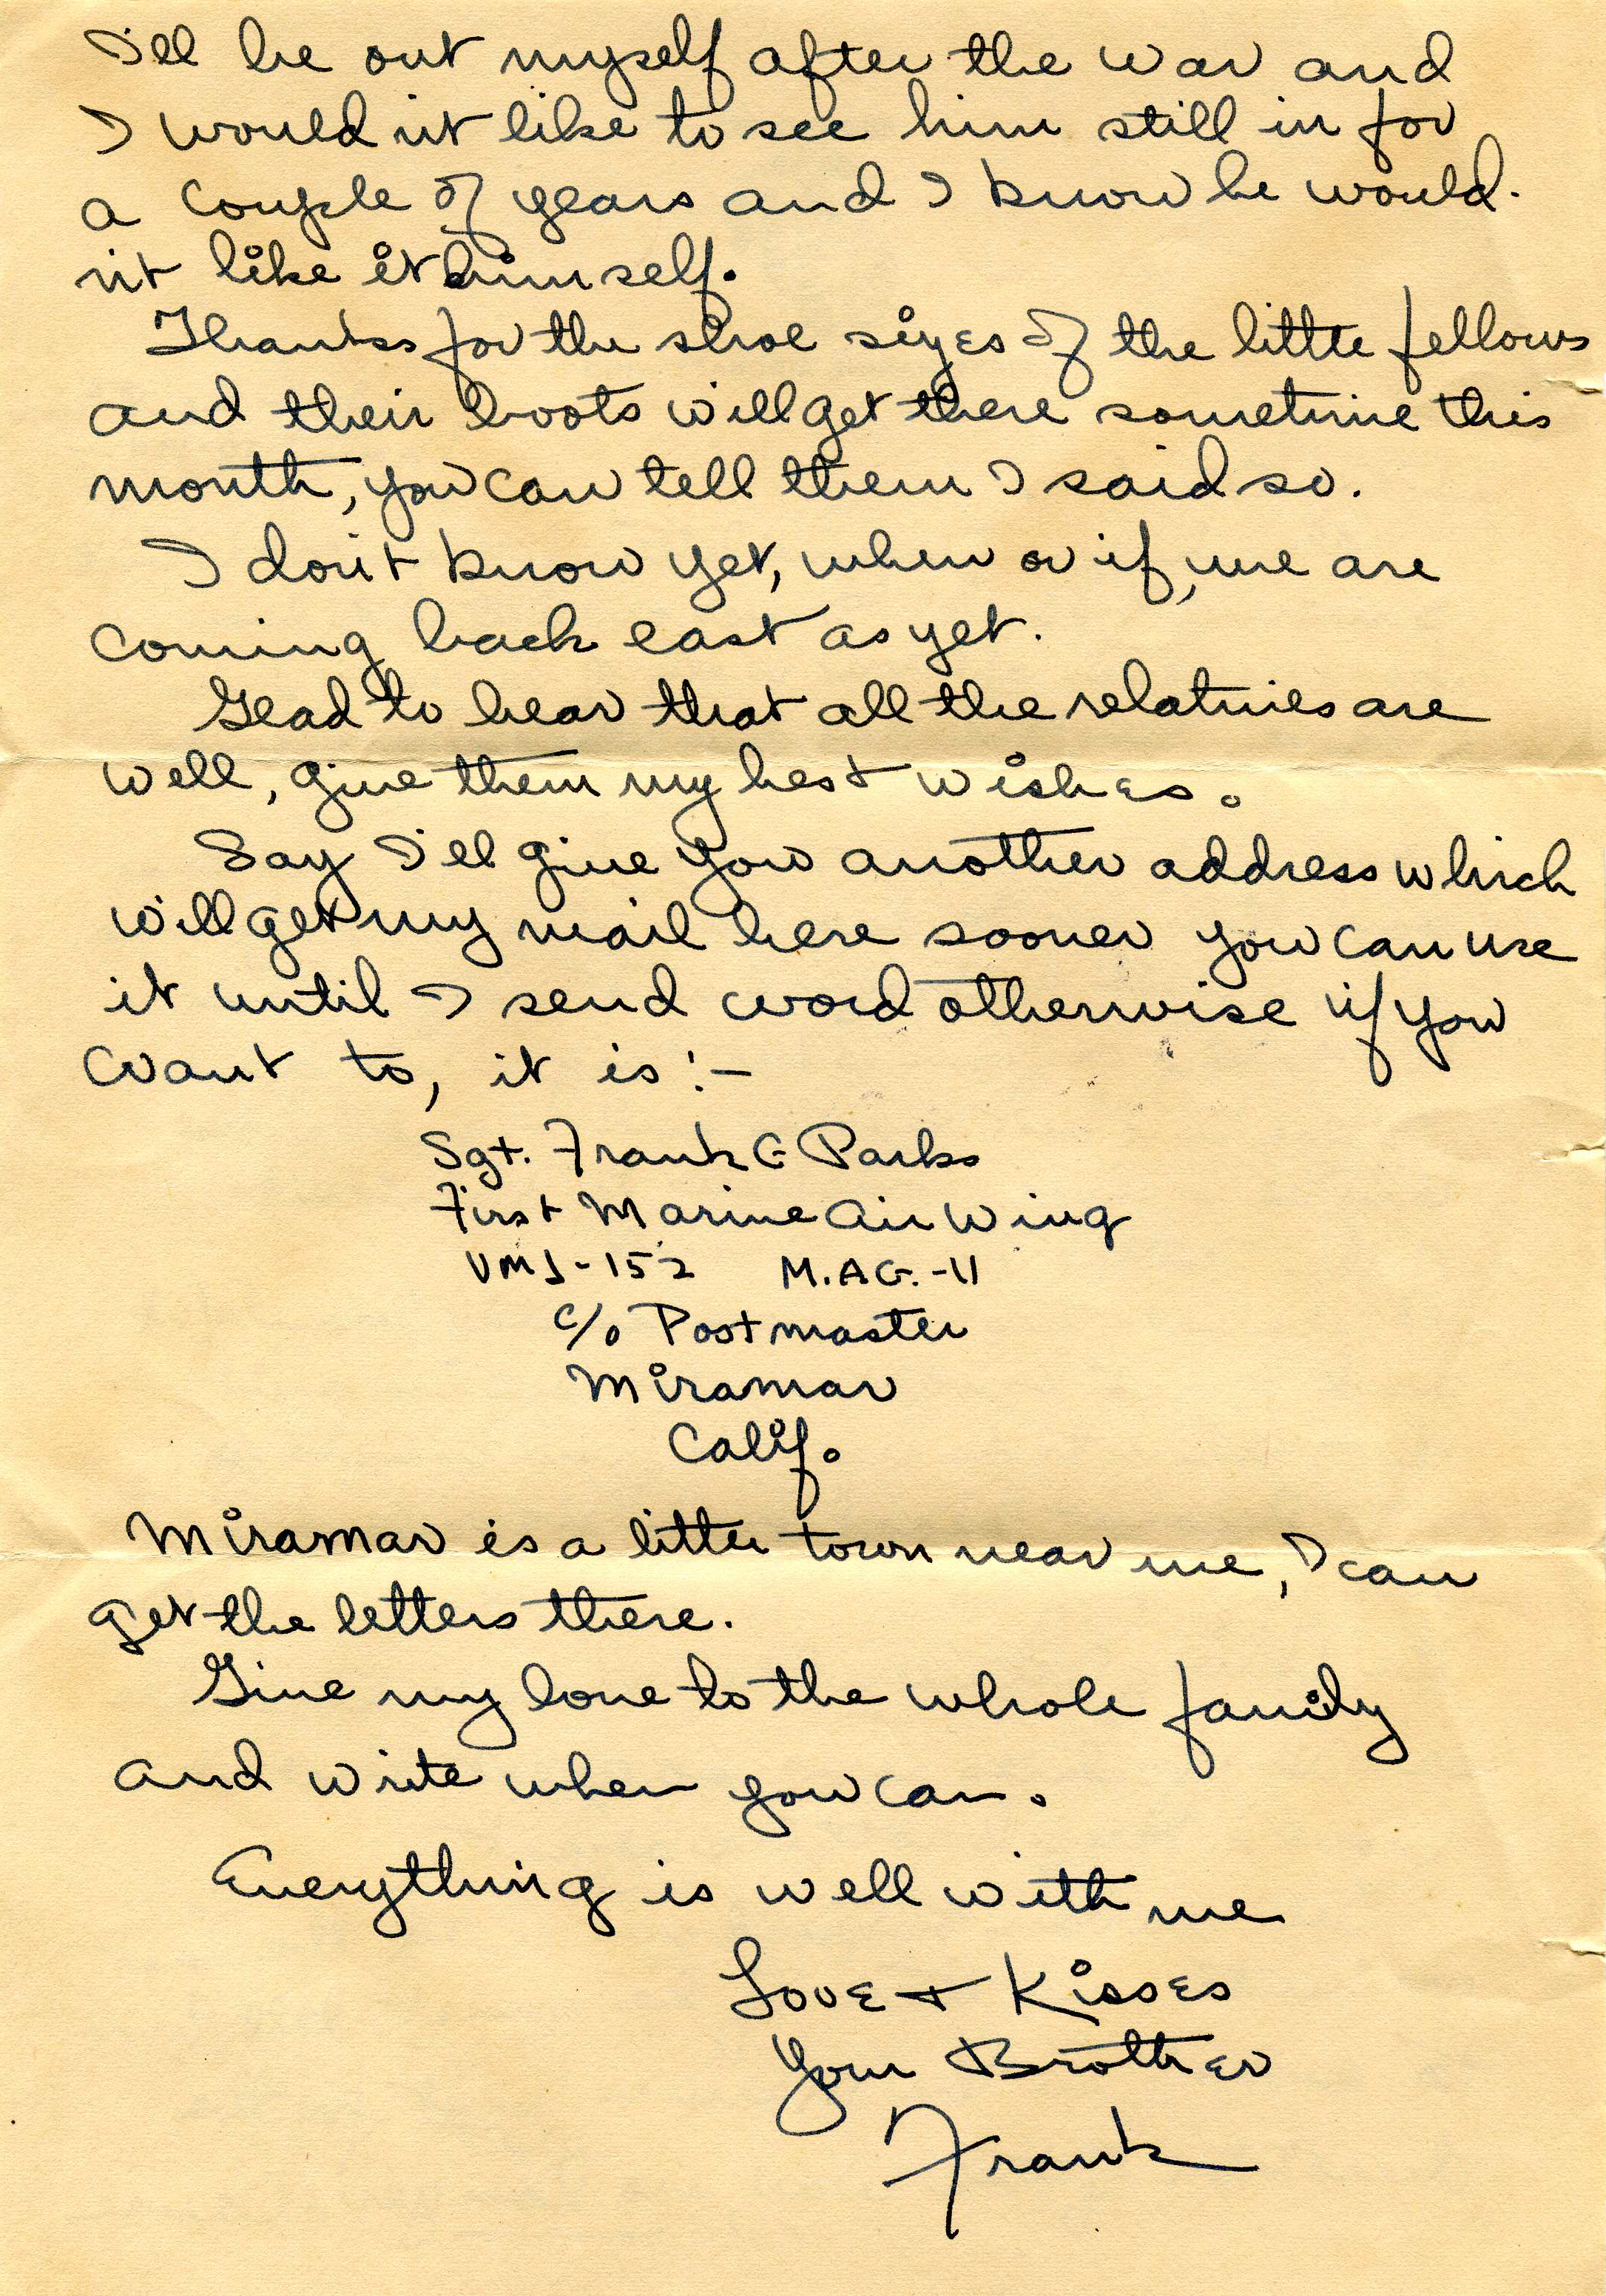 I'll be out myself after the war and
I would n't like to see him still in for
a couple of years and I know he would-
n't like it himself.
Thanks for the shoe sizes of the little fellows
and their boots will get there sometime this
month, you can tell them I said so.
I don't know yet, when or if, we are
coming back east as yet.
Glad to hear that all the relatives are
well, give them my best wishes.
Say I'll give you another address which
will get my mail here sooner you can use
it until I send word otherwise if you
want to, it is:-
Sgt. Frank G Parks
First Marine Air Wing
VMJ-152 M.AG.-11
c/o Postmaster
Miramar
Calif.
Miramar is a little town near me, I can
get the letters there.
Give my love to the whole family
and write when you can.
Everything is well with me
Love + Kisses
Your Brother
Frank